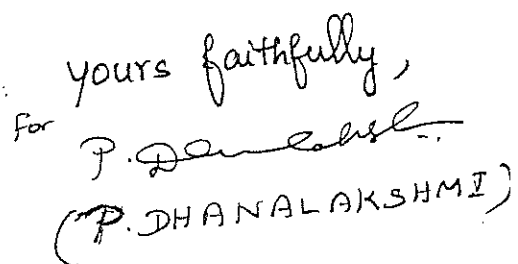 yours faithfully,
For
P. Dhanalakshmi
(P. DHANALAKSHMI)